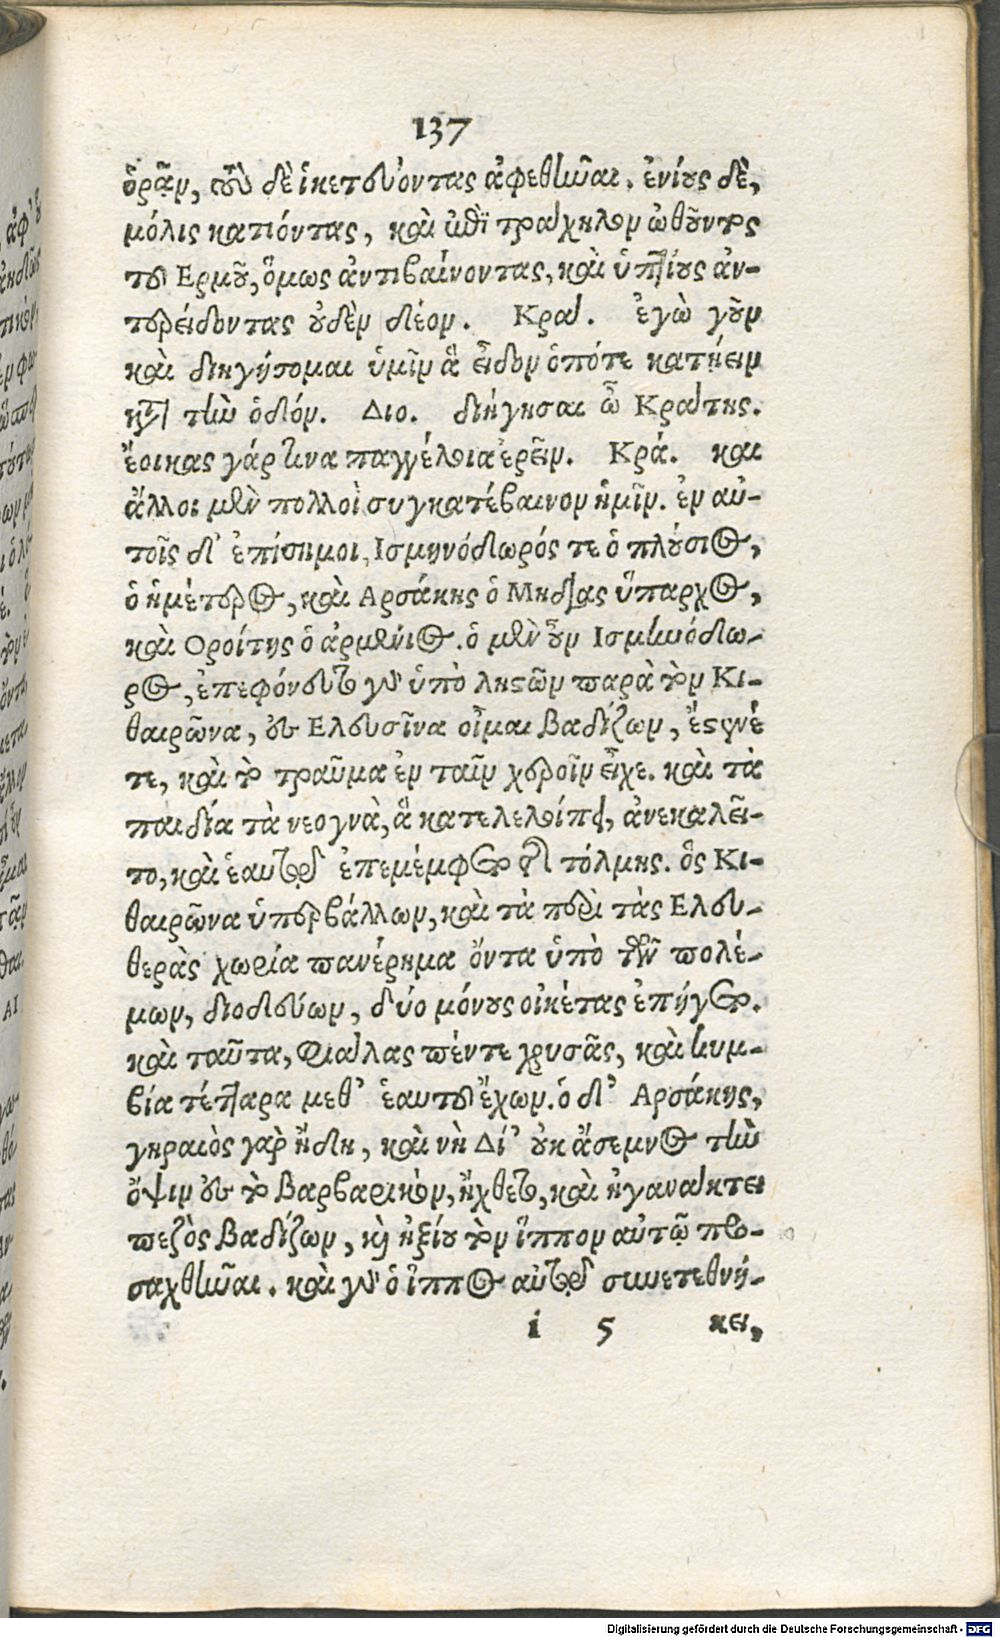 137
ὁρᾷν, τοὺς δὲ ἱκετεύοντας ἀφεθῆναι. ἐνίους δὲ,
μόλις κατιόντας, καὶ ἐπὶ τράχηλον ὠθοῦντος
τοῦ Ερμοῦ, ὅμως ἀντιβαίνοντας, καὶ ὑπτίους ἀν-
τερείδοντας οὐδὲν δέον. Κρά. ἐγὼ γοῦν
καὶ διηγήσομαι ὑμῖν ἃ εἶδον ὁπότε κατῄειν
κατὰ τὴν ὁδόν. Διο. διήγησαι ὦ Κράτης.
ἔοικας γάρ τινα παγγέλοια ἐρεῖν. Κρά. και
ἄλλοι μὲν πολλοὶ συγκατέβαινον ἡμῖν. ἐν αὐ-
τοῖς δ' ἐπίσημοι, Ισμηνόδωρός τε ὁ πλούσιος,
ὁ ἡμέτερος, καὶ Αρσάκης ὁ Μηδίας ὕπαρχος,
καὶ Οροίτης ὁ ἀρμένιος. ὁ μὲν οὖν Ισμηνόδω-
ρος, ἐπεφόνευτο γὰρ ὑπὸ λῃστῶν παρὰ τὸν Κι-
θαιρῶνα, ἐς Ελευσῖνα οἶμαι βαδίζων, ἔστενέ
τε, καὶ τὸ τραῦμα ἐν ταῖν χεροῖν εἶχε. καὶ τὰ
παιδία τὰ νεογνὰ, ἃ κατελελοίπει, ἀνεκαλεῖ-
το, καὶ ἑαυτῷ ἐπεμέμφετο τῆς τόλμης. ὃς Κι-
θαιρῶνα ὑπερβάλλων, καὶ τὰ περὶ τὰς Ελευ-
θερὰς χωρία πανέρημα ὄντα ὑπὸ τῶν πολέ-
μων, διοδεύων, δύο μόνους οἰκέτας ἐπήγετο.
καὶ ταῦτα, φιάλας πέντε χρυσᾶς, καὶ κυμ-
βία τέτταρα μεθ' ἑαυτοῦ ἔχων. ὁ δ' Αρσάκης,
γηραιὸς γὰρ ἤδη, καὶ νὴ Δί' οὐκ ἄσεμνος τὴν
ὄψιν ἐς τὸ βαρβαρικὸν, ἤχθετο, καὶ ἠγανάκτει
πεζὸς βαδίζων, καὶ ἠξίου τὸν ἵππον αὐτῷ προ-
σαχθῆναι. καὶ γὰρ ὁ ἵππος αὐτῷ συνετεθνή-
i 5 κει,
Digitalisierung gefördert durch die Deutsche Forschungsgemeinschaft - DFG